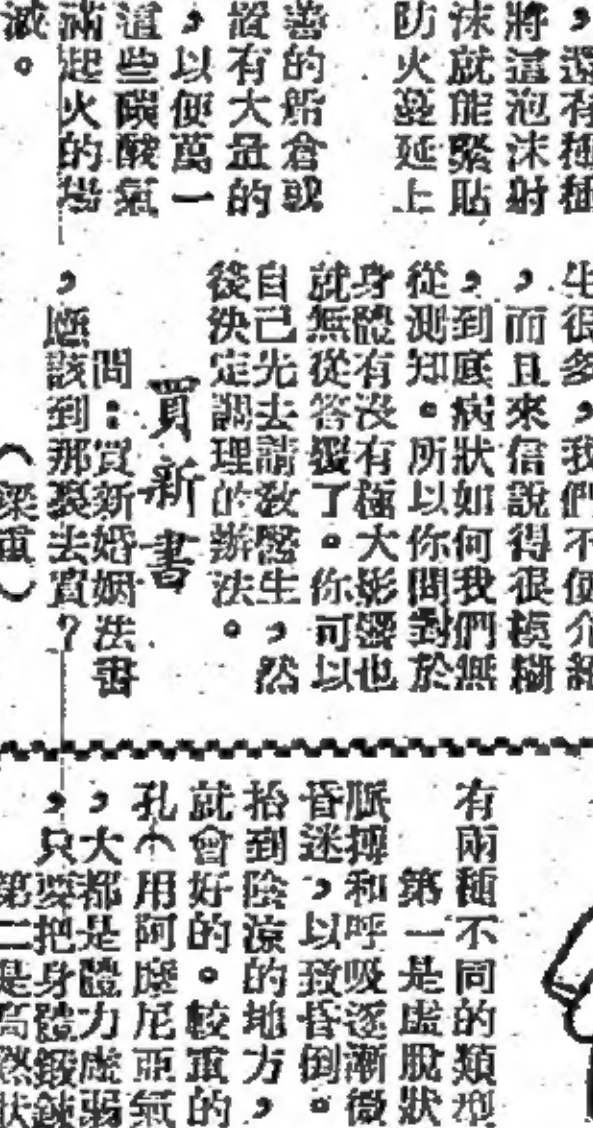 ，還有種種
將這泡沫射
沫就能緊貼
防火蔓延上
善的船倉或
設有大量的
，以便萬一
這些碳酸氣
滿起火的場
滅。
生很多，我們不便介紹
，而且來信說得很模糊
，到底病狀如何我們無
從測知。所以你問對於
身體有沒有極大影響也
就無從答覆了。你可以
自己先去請教醫生，然
後決定調理的辦法。
買新書
問：買新婚姻法書
，應該到那裏去買？
（梁
有兩種不同的類型
第一是虛脫狀
脈搏和呼吸逐漸微
昏迷，以致昏倒。
抬到陰涼的地方，
就會好的。較重的
孔（用阿摩尼亞氣
，大都是體力虛弱
，只要把身體鍛鍊
第二是高熱狀